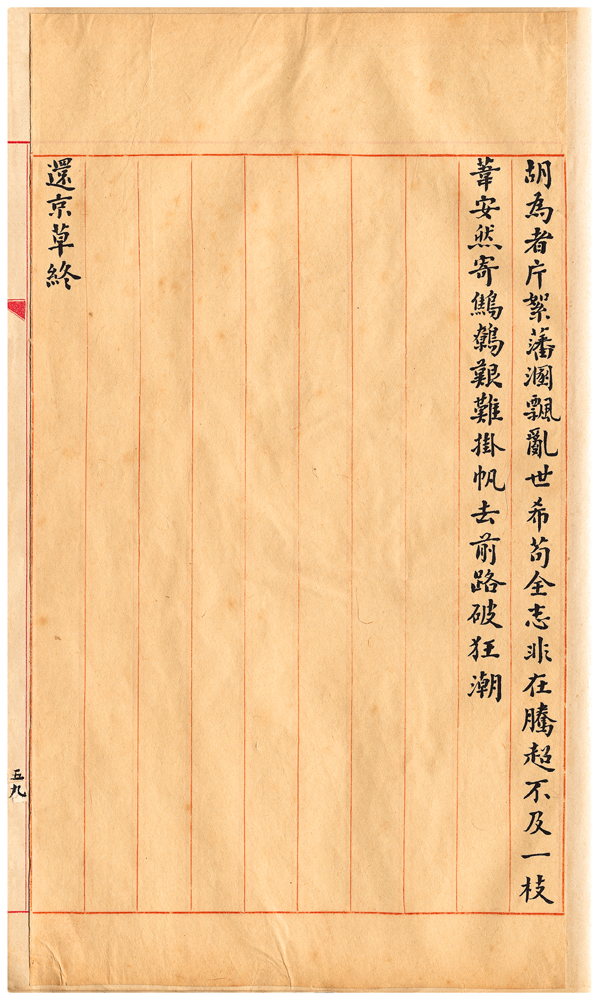 胡為者片絮藩溷飄亂世希苟全志非在騰超不及一枝
葦安然寄鷦鷯艱難掛帆去前路破狂潮
還京草終
五九